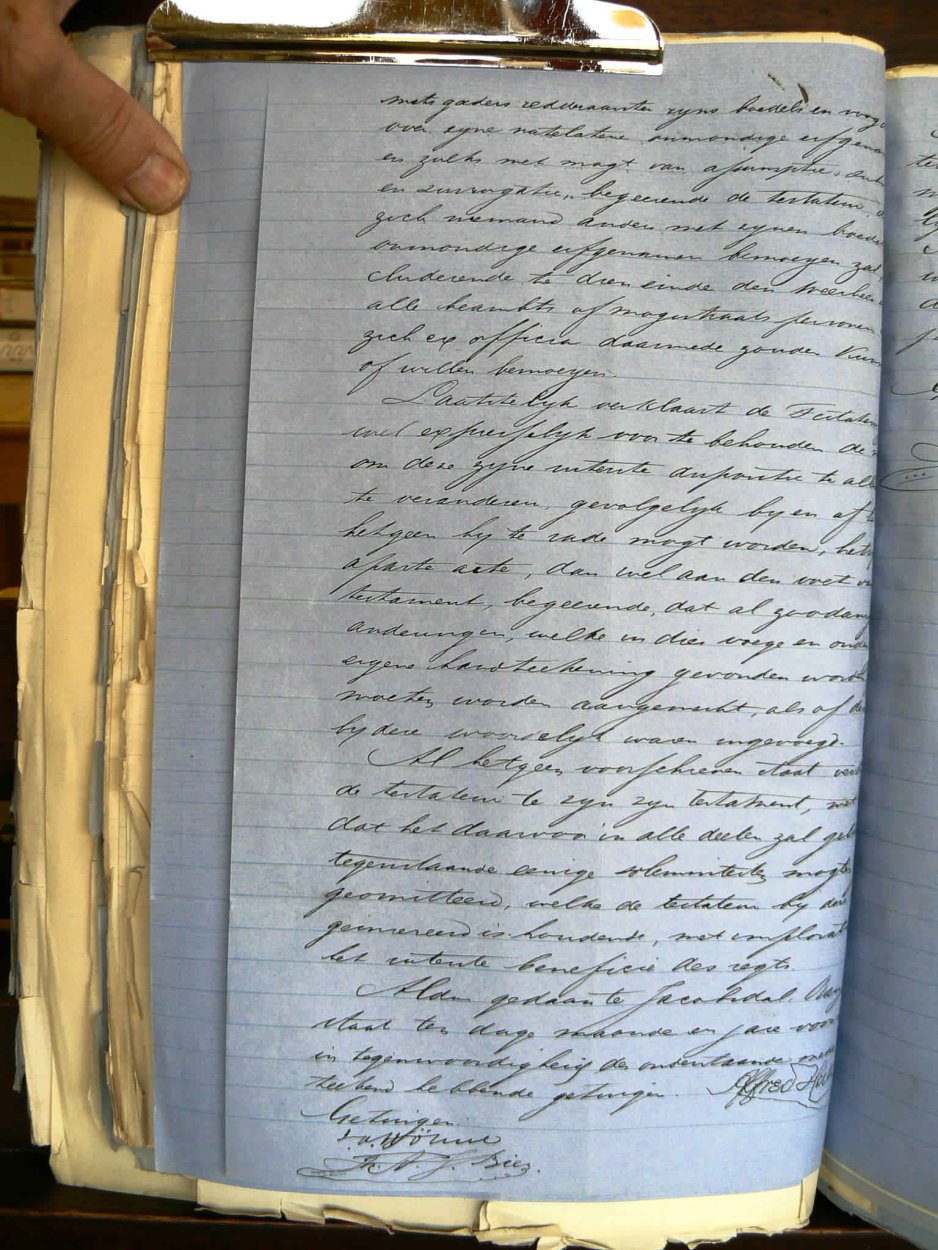 mits gaders redderaanten zyns boedels en voog
over zyne natelatene onmondige erfgena
en zulks met magt van assumptie, sub
en surrogatie, begeerende de testateur, d
zich niemand anders met zynen boedel
onmondige erfgenamen bemoeyen zal
cluderende te dien einde den Weerhee
alle beambts of magistraats personen
zich ex officio daarmede zouden kun
of willen bemoeyen.
Laatstelyk verklaart de Testateur
wel expresselyk voor te behouden de
om deze zyne uiterste dispositie te alle
te veranderen, gevolgelyk by en af te
hetgeen hy te rade mogt worden, hetzy
aparte acte, dan wel aan den voet v
testament, begeerende, dat al zoodan
anderingen, welke in dier voege en onde
eigene handteekening gevonden word
moeten worden aangemerkt, als of de
by deze woordelyk waren ingevoegd.
Al hetgeen voorschreven staat verk
de testateur te zyn zyn testament, wil
dat het daarvoor in alle deelen zal gel
tegenstaande eenige solemniteiten mogte
geomitteerd, welke de testateur by de
geinsereerd is houdende, met implorat
het uiterste beneficie des regts.
Aldus gedaan te Jacobsdal, Oran
staat ten dage maande en jare voor
in tegenwoordigheid de onderstaande mede
teekend hebbende getuigen. Alfred
Getuigen
F. A. J. Bies.